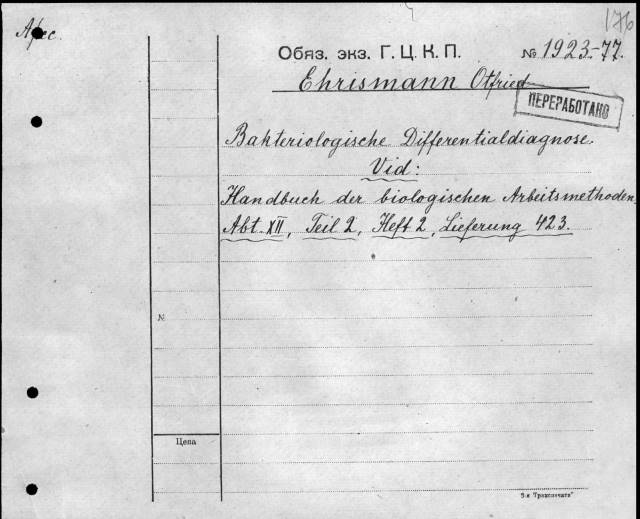 176
Обяз. экз. Г. Ц. К. П. № 1923-77.
Ehrismann Otfried
ПЕРЕРАБОТАНО
Bakteriologische Differentialdiagnose.
Vid:
Handbuch der biologischen Arbeitsmethoden,
Abt. XII, Teil 2, Heft 2, Lieferung 423.
№
Цена
3-я Транспечать"